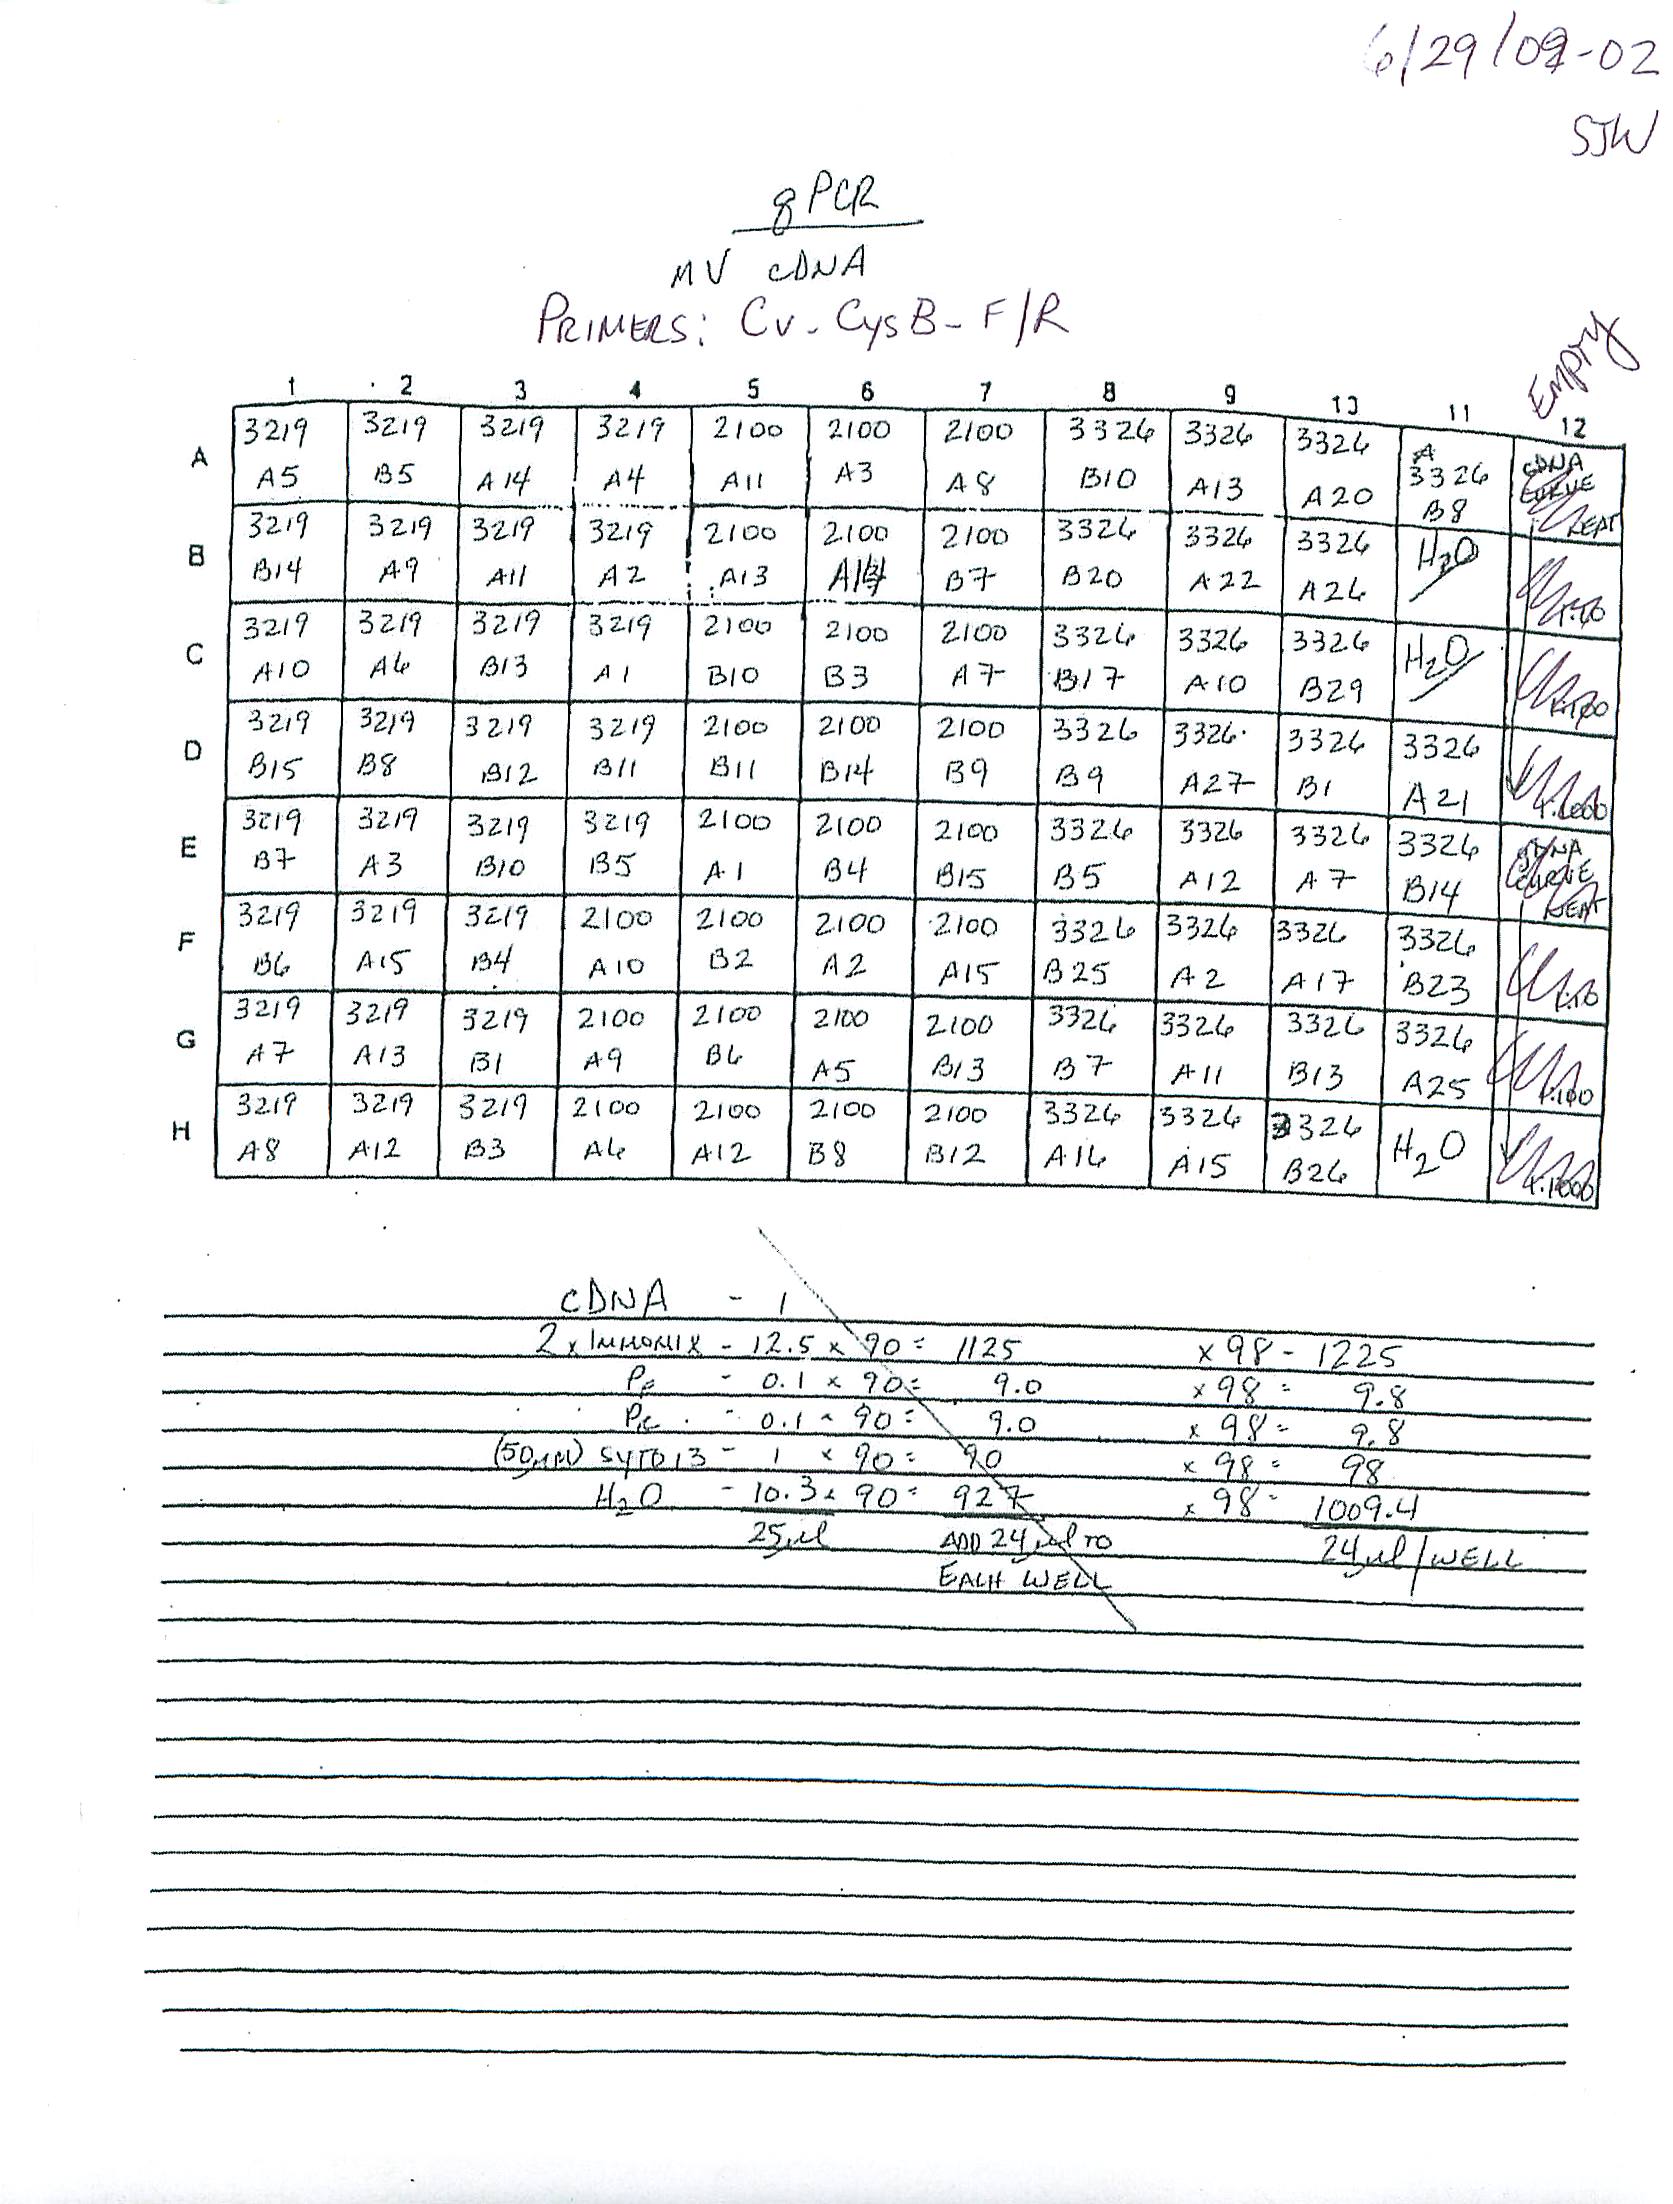 6/29/09-02
SJW
qPCR
MV cDNA
PRIMERS: Cv-CysB-F/R
Empty
1 2 3 4 5 6 7 8 9 10 11 12
A 3219 3219 3219 3219 2100 2100 2100 3326 3326 3326 3326 cDNA CURVE NEAT
A5 B5 A14 A4 A11 A3 A8 B10 A13 A20 B8
B 3219 3219 3219 3219 2100 2100 2100 3326 3326 3326 H2O
B14 A9 A11 A2 A13 B7 B20 A22 A26 1:10
C 3219 3219 3219 3219 2100 2100 2100 3326 3326 3326 H2O
A10 A6 B13 A1 B10 B3 A7 B17 A10 B29 1:100
D 3219 3219 3219 3219 2100 2100 2100 3326 3326 3326 3326
B15 B8 B12 B11 B11 B14 B9 B9 A27 B1 A21 1:1000
E 3219 3219 3219 3219 2100 2100 2100 3326 3326 3326 3326 gDNA CURVE NEAT
B7 A3 B10 B5 A1 B4 B15 B5 A12 A7 B14
F 3219 3219 3219 2100 2100 2100 2100 3326 3326 3326 3326
B6 A15 B4 A10 B2 A2 A15 B25 A2 A17 B23 1:10
G 3219 3219 3219 2100 2100 2100 2100 3326 3326 3326 3326
A7 A13 B1 A9 B6 A5 B13 B7 A11 B13 A25 1:100
H 3219 3219 3219 2100 2100 2100 2100 3326 3326 3326 H2O
A8 A12 B3 A6 A12 B8 B12 A16 A15 B26 1:1000
cDNA - 1
2x IMMOMIX - 12.5 x 90 = 1125 x 98 - 1225
PF - 0.1 x 90 = 9.0 x 98 = 9.8
PR - 0.1 x 90 = 9.0 x 98 = 9.8
(50µM) SYTO13 - 1 x 90 = 90 x 98 = 98
H2O - 10.3 x 90 = 927 x 98 = 1009.4
25µl ADD 24µl TO 24µl/WELL
EACH WELL